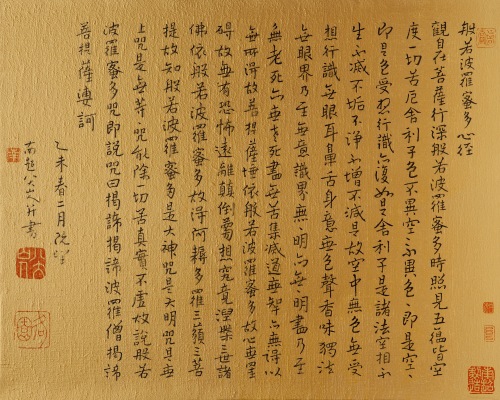 般若波羅蜜多心經
觀自在菩薩行深般若波羅蜜多時照見五蘊皆空
度一切苦厄舍利子色不異空〻不異色〻即是空〻
即是色受想行識亦復如是舍利子是諸法空相不
生不滅不垢不淨不增不減是故空中無色無受
想行識無眼耳鼻舌身意無色聲香味觸法
無眼界乃至無意識界無〻明亦無〻明盡乃至
無老死亦無老死盡無苦集滅道無智亦無得以
無所得故菩提薩埵依般若波羅蜜多故心無罣
碍故無有恐怖遠離顛倒夢想究竟涅槃三世諸
佛依般若波羅蜜多故得阿耨多羅三藐三菩
提故知般若波羅蜜多是大神咒是大明咒是無
上咒是無等〻咒能除一切苦真實不虛故說般若
波羅蜜多咒即說咒曰揭諦揭諦波羅僧揭諦
菩提薩婆訶
乙未春二月